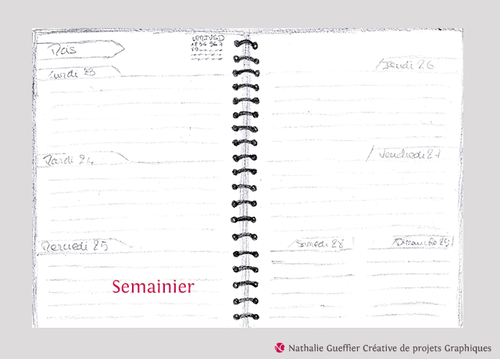 Mois
Lundi 23
Mardi 24
Mercredi 25
Jeudi 26
Vendredi 27
Samedi 28
Dimanche 29
Semainier
Nathalie Gueffier Créative de projets Graphiques